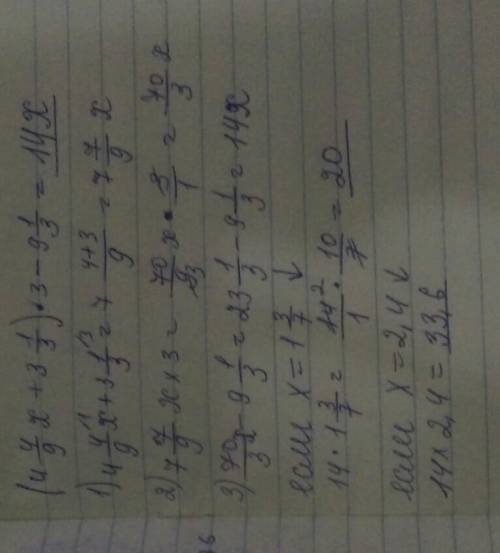 (4 4/9 x + 3 1/3) • 3 - 9 1/3 = 14x
1) 4 4/9 x + 3 1/3 = 7 4+3/9 = 7 7/9 x
2) 7 7/9 x × 3 = 70/9 x • 3/1 = 70/3 x
3) 70/3 x - 9 1/3 = 23 1/3 - 9 1/3 = 14x
если x = 1 3/7 ↓
14 • 1 3/7 = 14/1 • 10/7 = 20
если x = 2,4 ↓
14 × 2,4 = 33,6